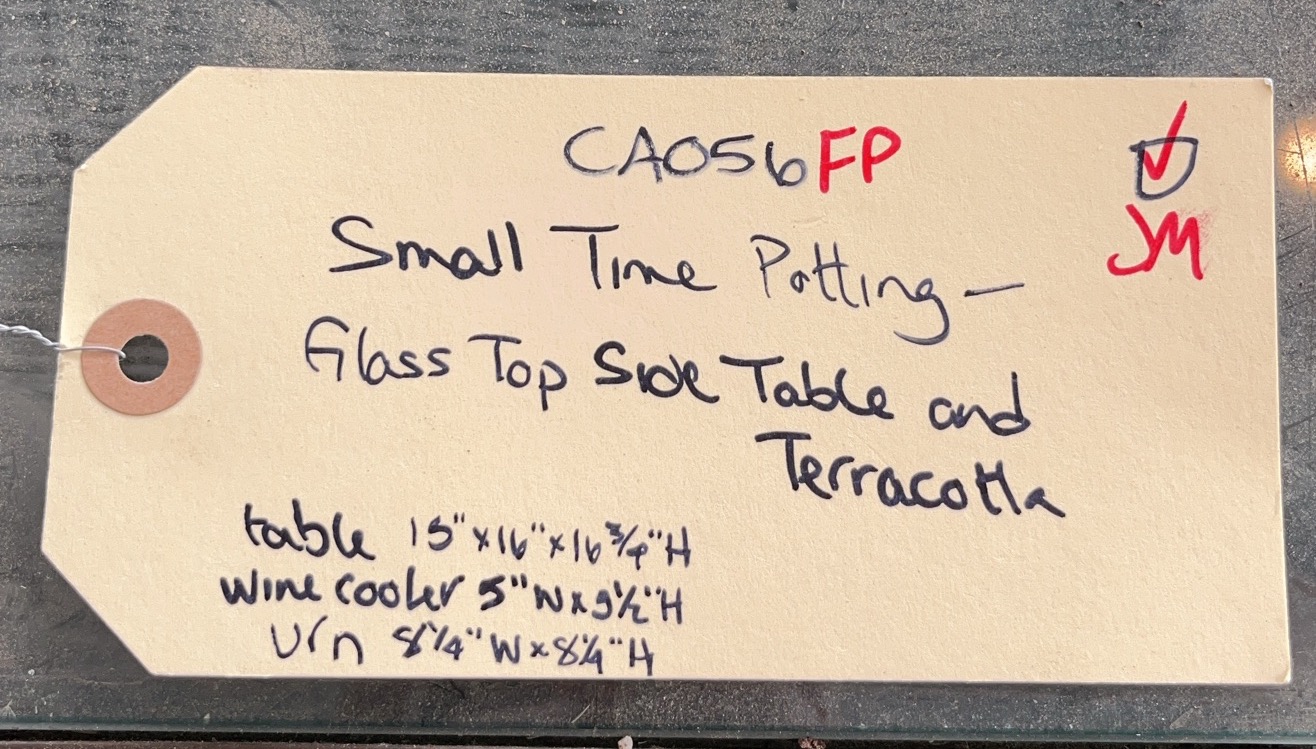 CA056FP
✓
JM
Small Time Potting -
Glass Top Side Table and
Terracotta
table 15" x 16" x 16 3/4" H
wine cooler 5" W x 9 1/2" H
urn 8 1/4" W x 8 1/4" H